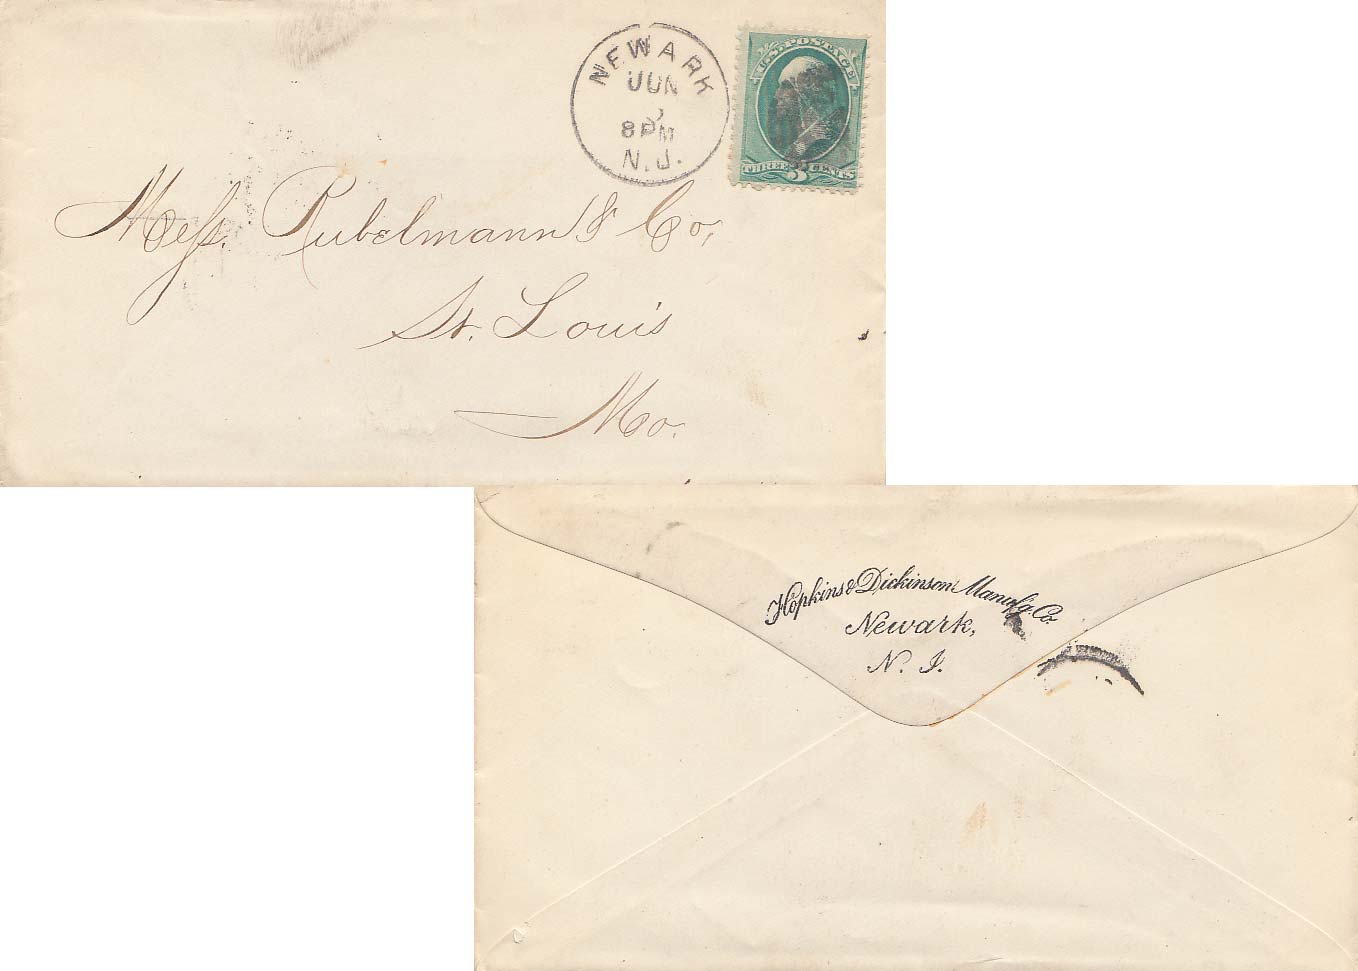 NEWARK
JUN
8 PM
N.J.
U.S. POSTAGE
THREE 3 CENTS
Mess. Rubelmann & Co,
St. Louis
Mo.
Hopkins & Dickinson Manufg. Co.
Newark,
N. J.